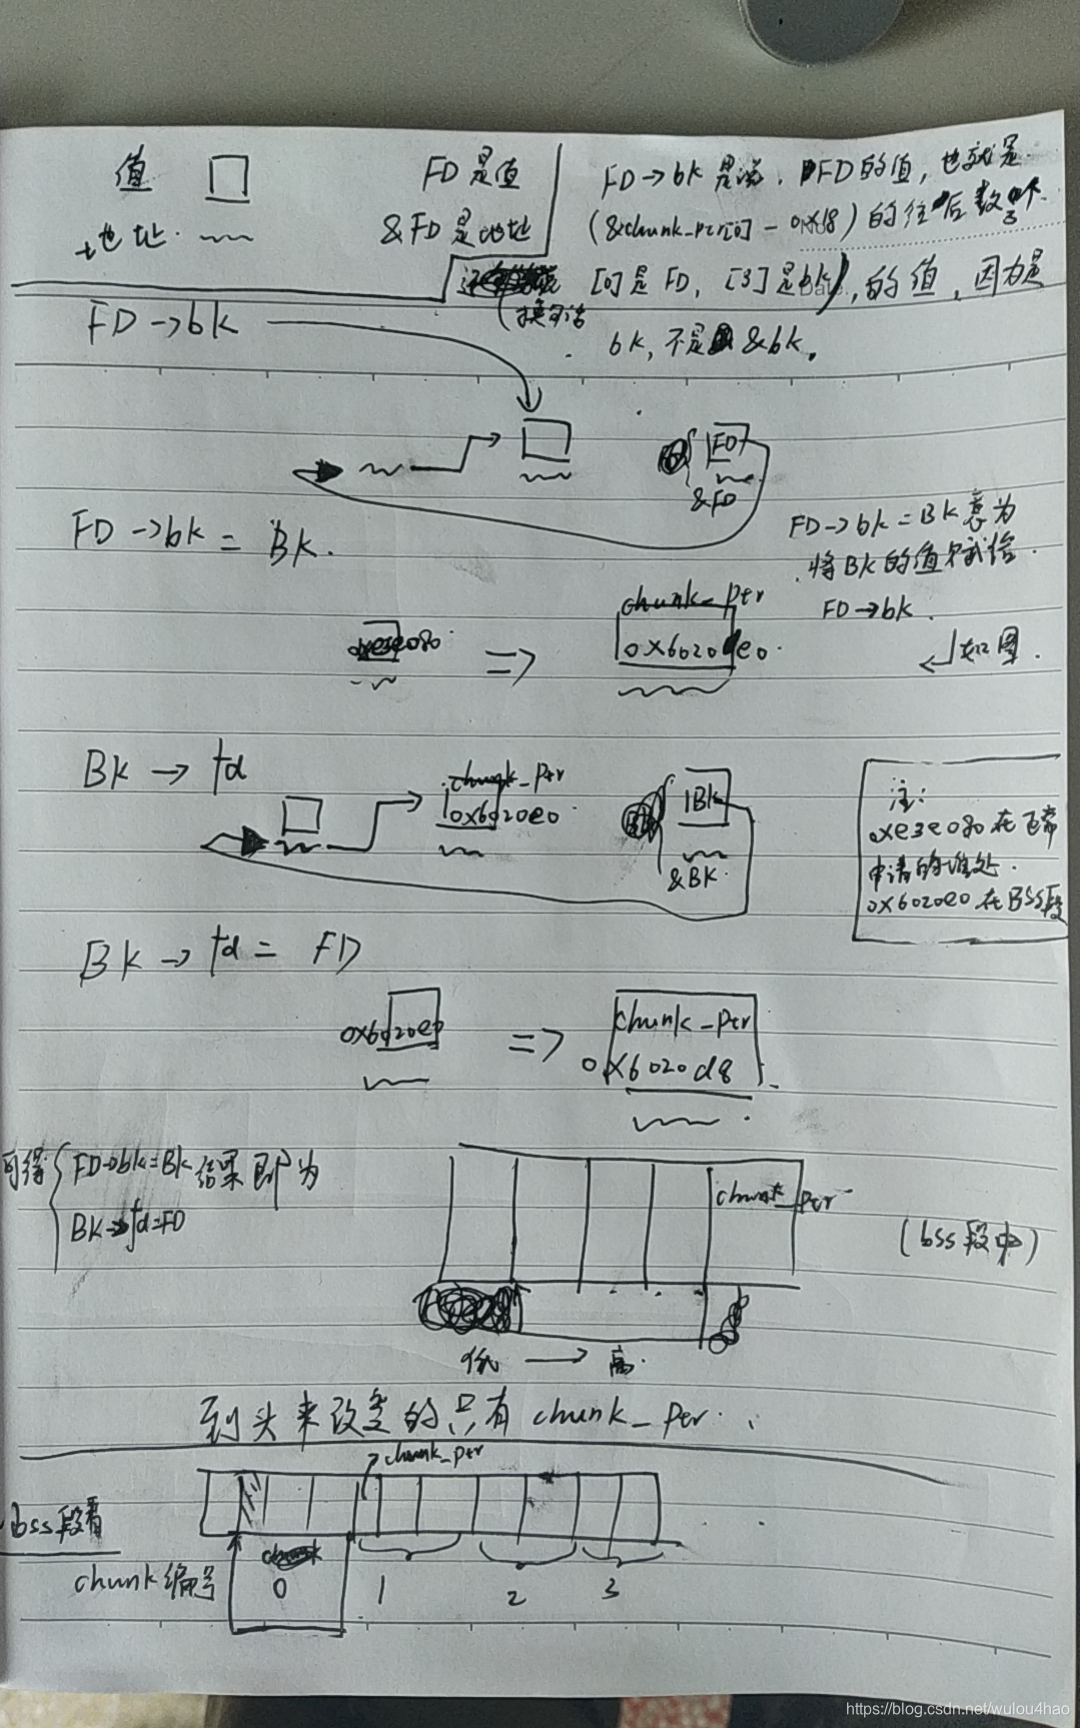 值
地址
FD是值
&FD是地址
FD→bk 是说, FD的值, 也就是
(&chunk_ptr[0] - 0x18) 的往后数3个
[0]是FD, [3]是bk), 的值, 因为是
(换句话
bk, 不是 &bk。
FD→bk
FD
&FD
FD→bk = BK.
FD→bk = BK 意为
将BK的值赋给
FD→bk.
如图.
chunk_ptr
0xe3e080
=>
0x6020e0
BK → fd
chunk_ptr
0x6020e0
BK
&BK
注:
0xe3e080 在正常
申请的堆处.
0x6020e0 在BSS段
BK → fd = FD
0x6020e0
=>
chunk_ptr
0x6020d8
可得
FD→bk=BK 结果即为
BK→fd=FD
chunk_ptr
(bss段中)
低 → 高
到头来改变的只有 chunk_ptr.
chunk_ptr
bss段看
chunk编号
0 1 2 3
https://blog.csdn.net/wulou4hao